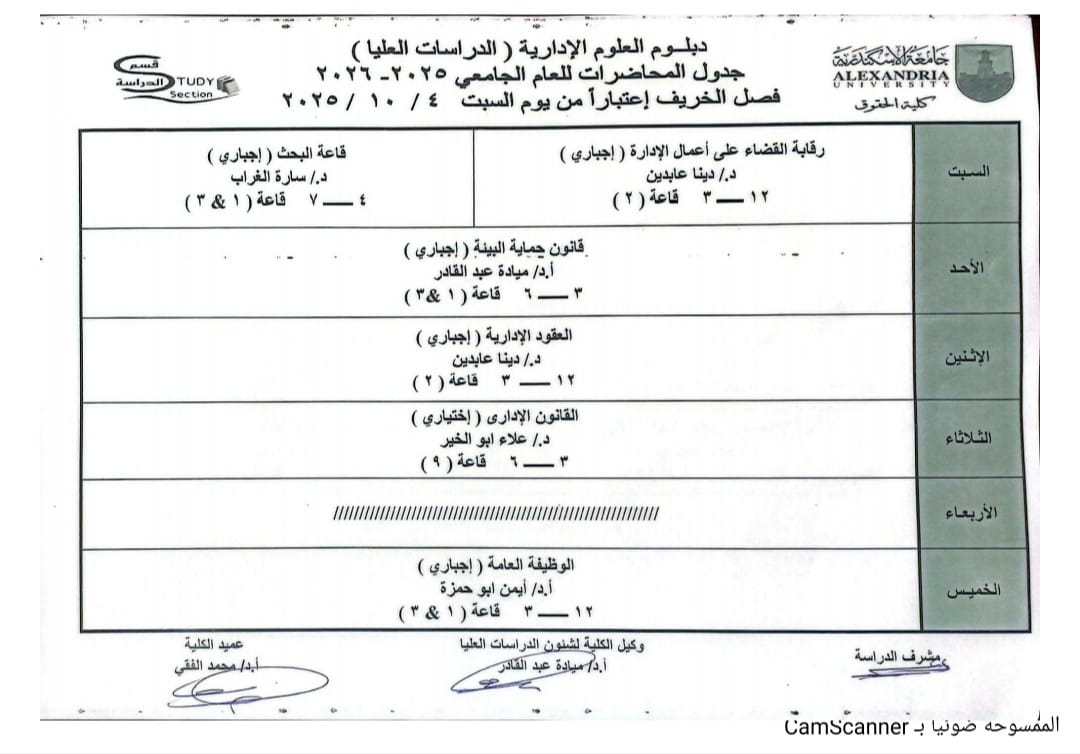 دبلـوم العلوم الإدارية ( الدراسات العليا )
جدول المحاضرات للعام الجامعي ٢٠٢٥- ٢٠٢٦
فصل الخريف إعتباراً من يوم السبت ٤ / ١٠ / ٢٠٢٥
جامعة الإسكندرية
ALEXANDRIA
UNIVERSITY
كلية الحقوق
قسم
الدراسة
STUDY
Section
السبت
رقابة القضاء على أعمال الإدارة ( إجباري )
د./ دينا عابدين
١٢ ــــ ٣ قاعة ( ٢ )
قاعة البحث ( إجباري )
د./ سارة الغراب
٤ ــــ ٧ قاعة ( ١ & ٣ )
الأحد
قانون حماية البيئة ( إجباري )
أ.د/ ميادة عبد القادر
٣ ــــ ٦ قاعة ( ١ &٣ )
الإثنين
العقود الإدارية ( إجباري )
د./ دينا عابدين
١٢ ــــ ٣ قاعة ( ٢ )
الثلاثاء
القانون الإدارى ( إختياري )
د./ علاء ابو الخير
٣ ــــ ٦ قاعة ( ٩ )
الأربعاء
//////////////////////////////////////////////////////////////
الخميس
الوظيفة العامة ( إجباري )
أ.د/ أيمن ابو حمزة
١٢ ــــ ٣ قاعة ( ١ & ٣ )
مشرف الدراسة
وكيل الكلية لشئون الدراسات العليا
أ.د/ ميادة عبد القادر
عميد الكلية
أ.د/ محمد الفقي
الممسوحه ضوئيا بـ CamScanner